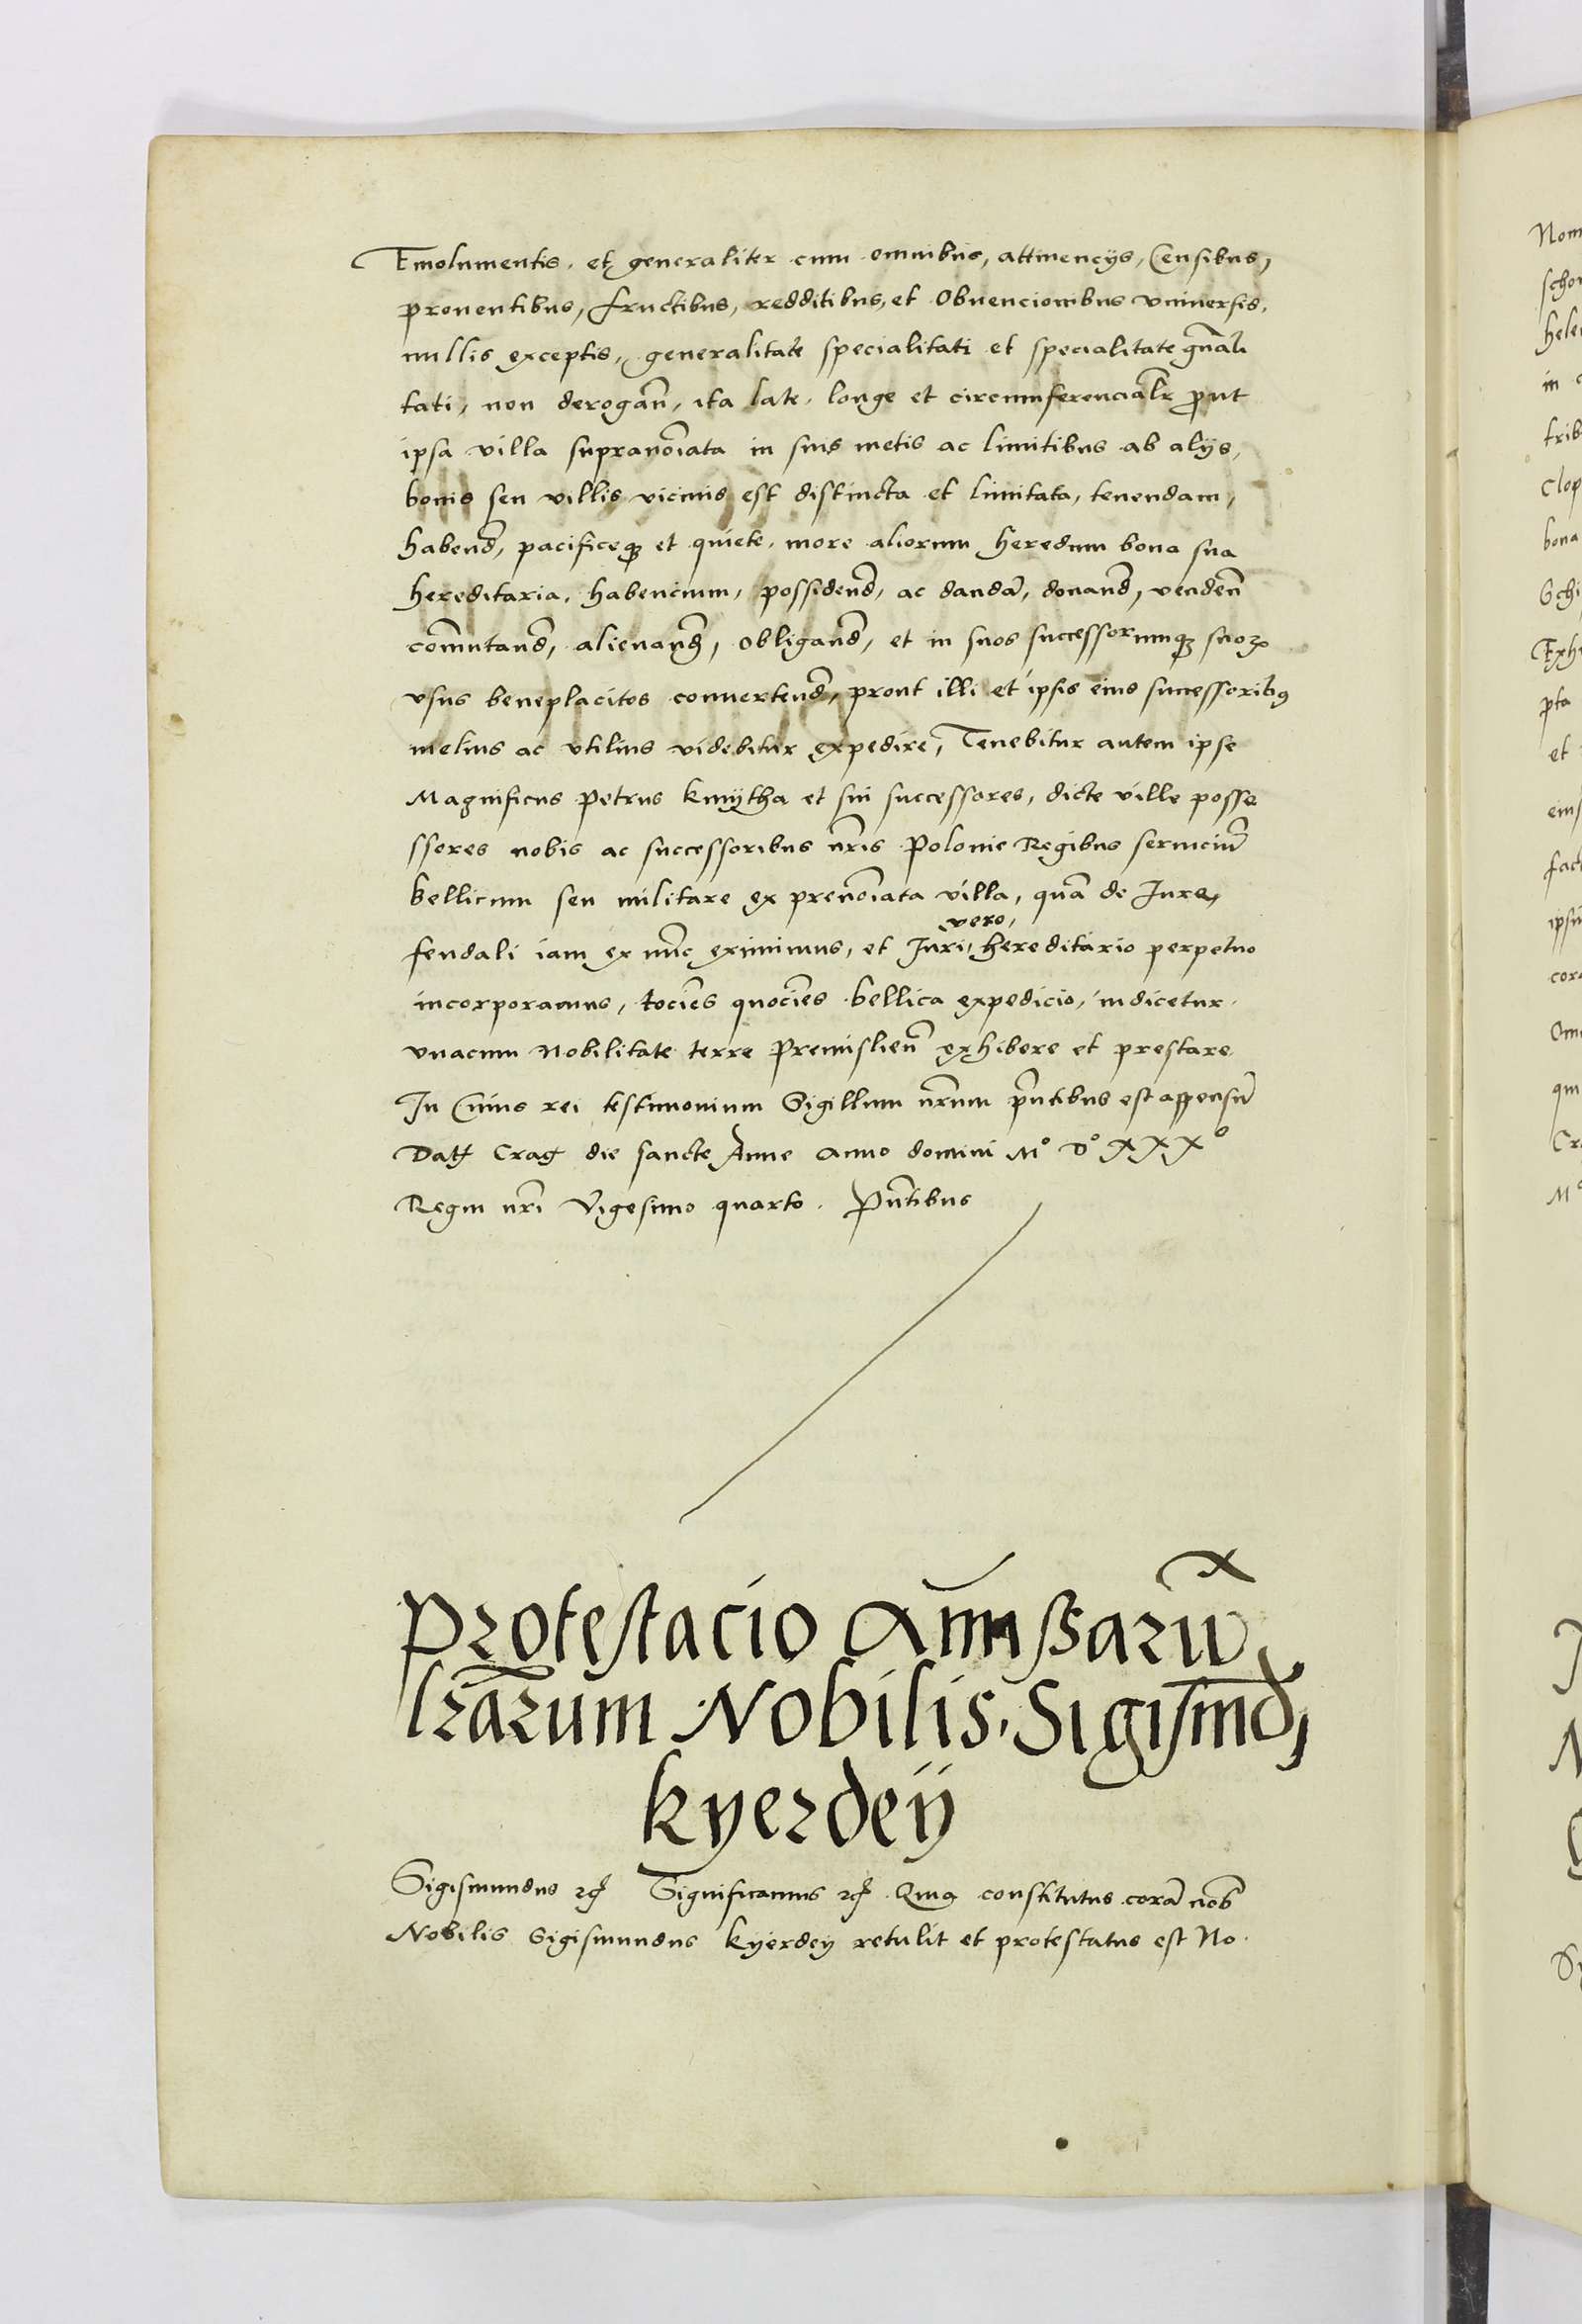 Emolumentis. et generaliter cum omnibus, attinencijs, Censibus,
prouentibus, fructibus, redditibus, et Obuencionibus vniuersis,
nullis exceptis, generalitate specialitati et specialitate gn̄ali
tati, non derogan̄, ita late, longe et circumferencialr̄ prout
ipsa villa supranoīata in suis metis ac limitibus ab alijs,
bonis seu villis vicinis est distincta et limitata, tenendam,
habend̄, pacificeqꝫ et quiete, more aliorum heredum bona sua
hereditaria, habencium, possidend̄, ac dandā, donand̄, venden̄
com̄utand̄, alienand̄, Obligand̄, et in suos successorumqꝫ suoꝝ
vsus beneplacitos conuertend̄, prout illi et ipsis eius successoribꝰ
melius ac vtilius videbitur expedire, Tenebitur autem ipse
Magnificus Petrus kmÿtha et sui successores, dicte ville posse
ssores nobis ac successoribus nr̄is Polonie Regibus seruiciūm
bellicum seu militare ex prenoīata villa, quā de Iure,
vero,
feudali iam ex nūc eximimus, et Iuri, hereditario perpetuo
incorporamus, tociēs quociēs bellica expedicio, indicetur.
vnacum Nobilitate terre Premislien̄ exhibere et prestare
In Cuius rei testimonium Sigillum nr̄um pn̄tibus est appensū
Datꝫ Cracꝫ die sancte Anne Anno domini Mº Dº XXXº
Regni nr̄i Vigesimo quarto. Pn̄tibus
Protestacio Amissarū
lrārum Nobilis, Sigismd̄,
kyerdeÿ
Sigismundus ꝛc̄ Significamus ꝛc̄ Quia constitutus corā nob̄
Nobilis Sigismundus kÿerdeÿ retulit et protestatus est No.